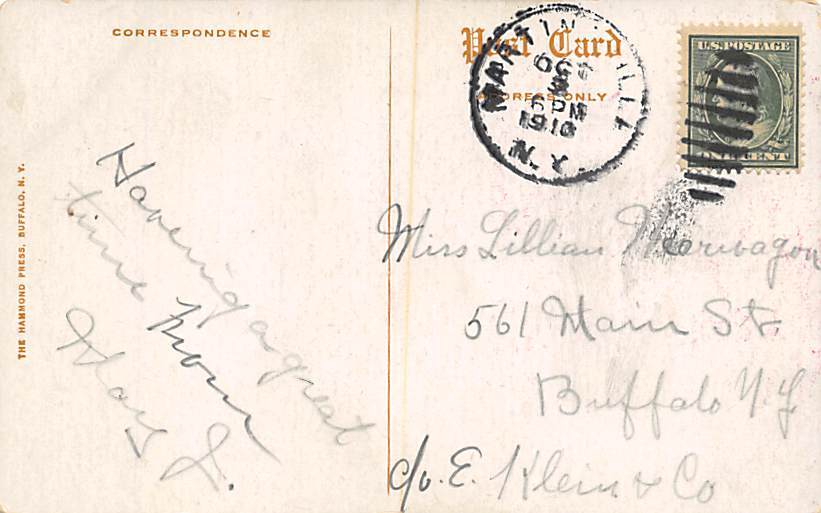 CORRESPONDENCE
Post Card
ADDRESS ONLY
OCT
6 PM
1910
N.Y.
U.S. POSTAGE
ONE CENT
THE HAMMOND PRESS, BUFFALO, N. Y.
Haveing a great
time from
J.
Miss Lillian
561 Main St.
Buffalo N.Y
c/o. E. Klein & Co